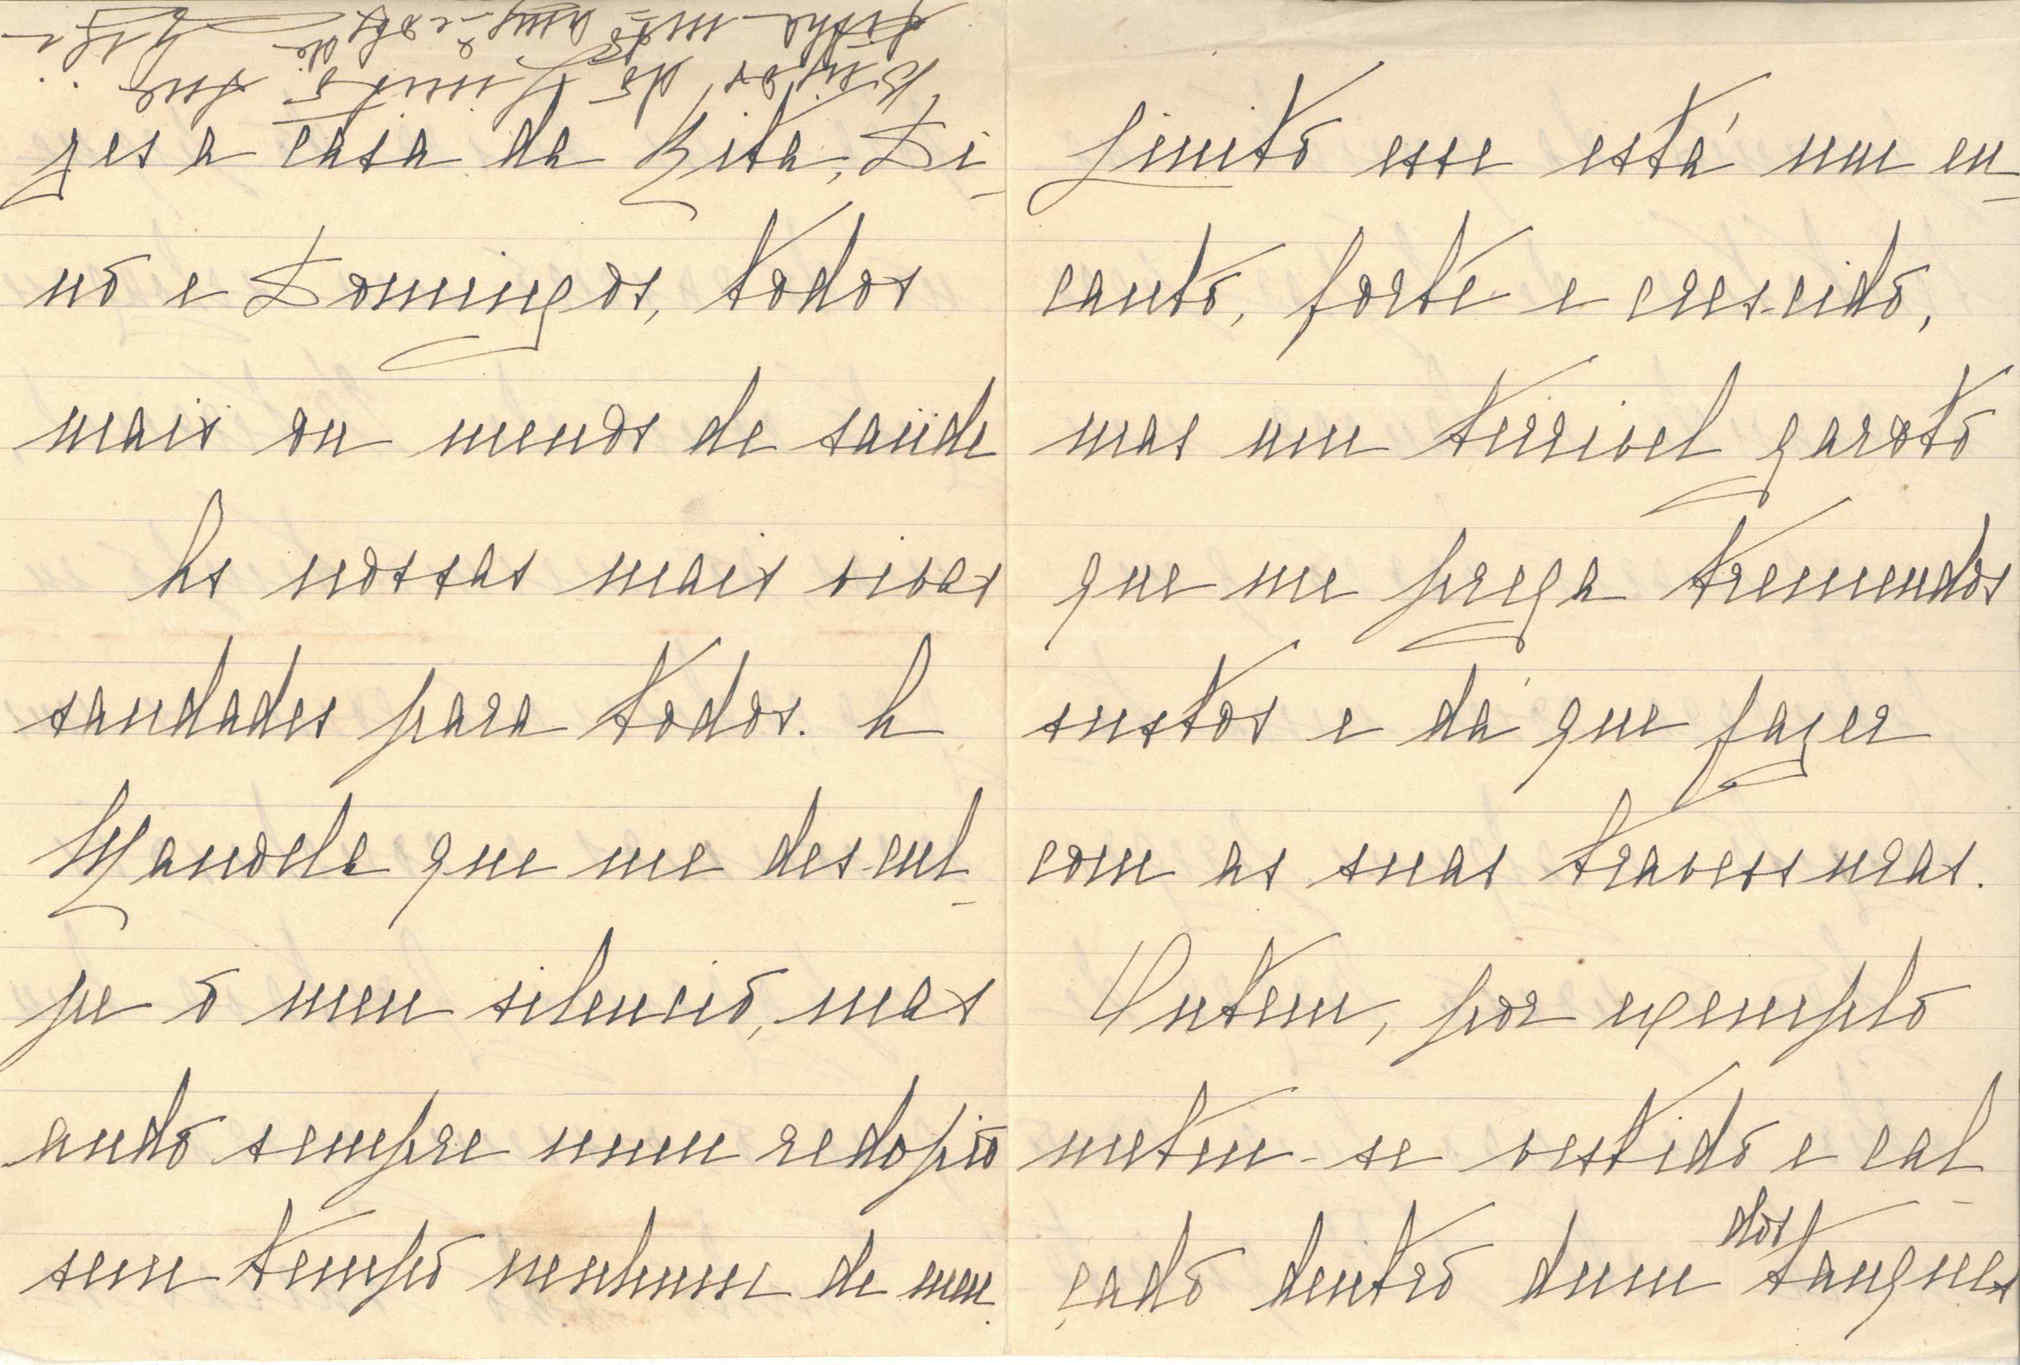 zes a casa da Rita, Di-
no e Domingos, todos
mais ou menos de saúde
As nossas mais vivas
saudades para todos. A
Manoela que me descul-
pe o meu silencio, mas
ando sempre num redopio
sem tempo nenhum de meu.
Beijos do sua
filha
esse está um en-
canto, forte e crescido,
mas um terrivel garoto
que me prega tremendos
sustos e dá que fazer
com as suas travessuras.
Ontem, por exemplo
meteu-se vestido e cal-
çado dentro dum dos tanques